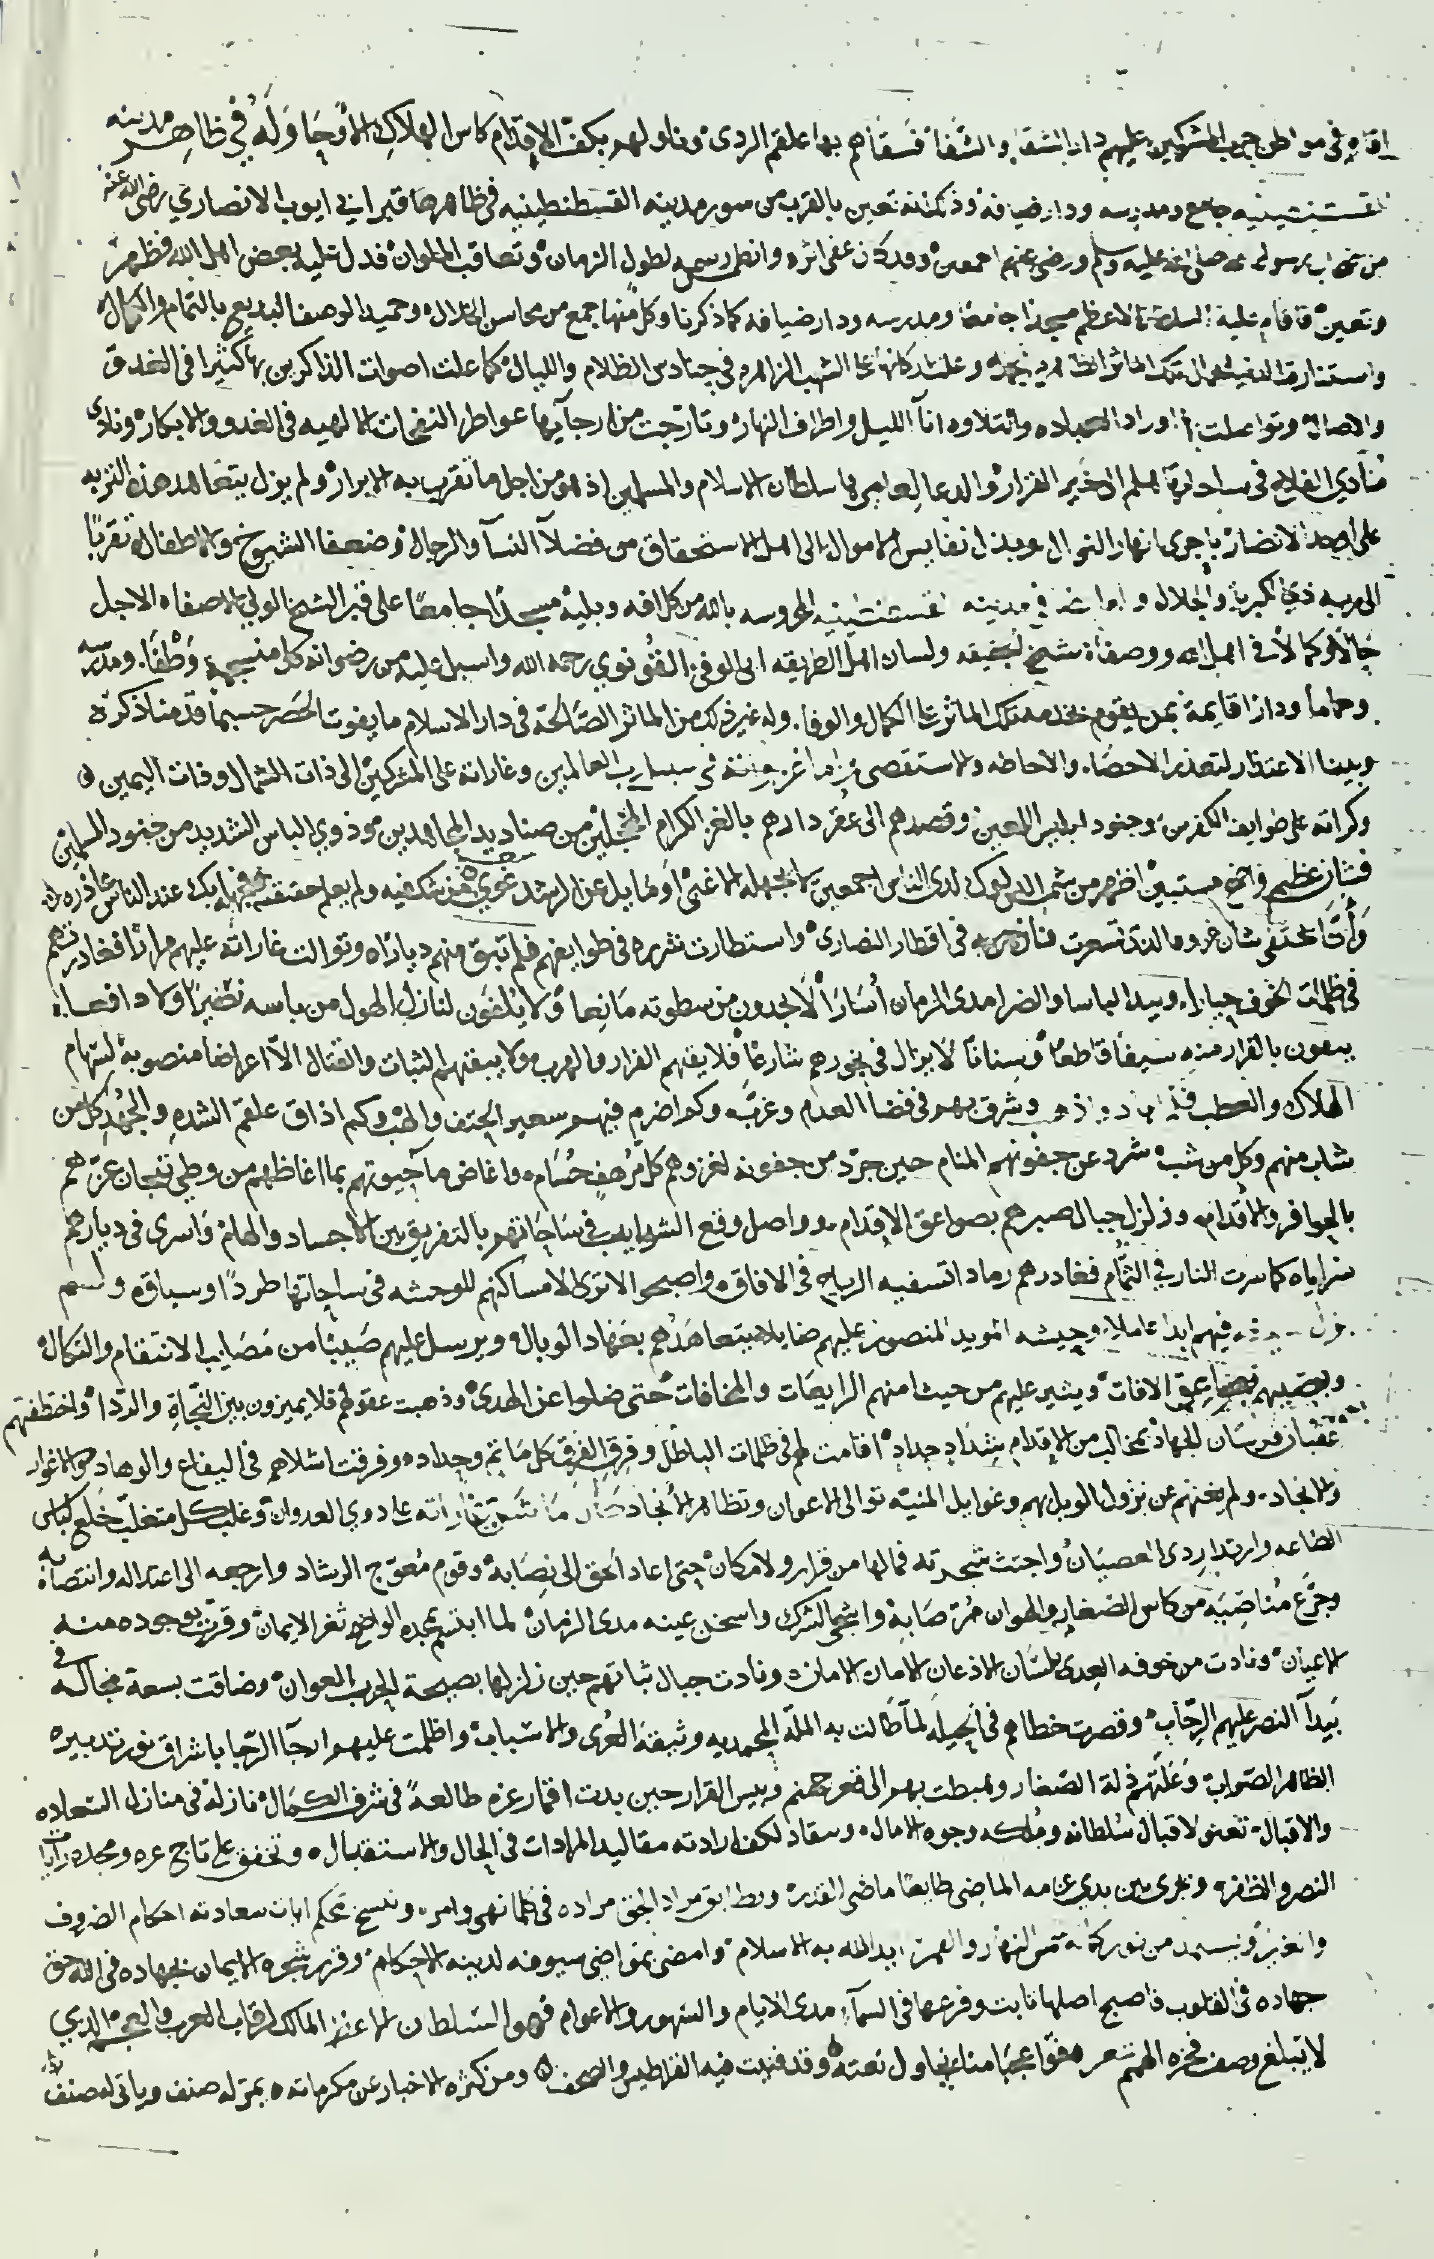 اقامه في مواطن حرب المشركين عليهم دار الشقا والشفا فسقاهم بها علقم الردى وناولهم بكف الاقدام كاس الهلاك الاوحا وله في ظاهر مدينه
القسطنطينيه جامع ومدرسه ودار ضيافه وذلك انه تعين بالقرب من سور مدينه القسطنطينيه في ظاهرها قبر ابي ايوب الانصاري رضي الله عنه
من اصحاب رسول الله صلى الله عليه وسلم ورضي عنهم اجمعين وقد كان عفى اثره وانطمس رسمه لطول الزمان وتعاقب الملوان فدل عليه بعض اهل الله فظهر
وتعين فاقام عليه السلطان الاعظم مسجدا جامعا ومدرسه ودار ضيافه كما ذكرنا وكل منها جمع من محاسن الخلال وحميد الوصف البديع بالتمام والكمال
واستنارت تلك الماثر وعلت كانها الشهب الزاهره في حنادس الظلام والليال كما علت اصوات الذاكرين بها كثيرا في الغدو
والاصال وتواصلت اوراد العباده والتلاوه انآ الليل واطراف النهار وتارجت من ارجآيها عواطر النفحات الالهيه في الغدو والابكار ونادى
منادي الفلاح في الخير الغزار والدعا لسلطان الاسلام والمسلمين اذ هو من اجل ما تقرب به الابرار ولم يزل يتعاهد هذه التربه
الانصار باجرى انهار النوال وبذل نفايس الاموال الى اهل الاستحقاق من فضلآ النسآ والرجال وضعفا الشيوخ والاطفال تقربا
الى ربه ذي الكبريا والجلال وله ايضا في مدينه القسطنطينيه المحروسه بالله من كل افه وبليه مسجدا جامعا على قبر الشيخ الولي الاصفاه الاجل
حالا وكمالا في اهل الله ووصفاه شيخ الحقيقه ولسان اهل الطريقه ابي الوفى القونوي رحمه الله واسبل عليه من رضوانه كل منسجمه وطفا ومدرسه
وحماما ودارا قايمة بمن يقوم بخدمه تلك الماثر على الكمال والوفا وله غير ذلك من الماثر الصالحة في دار الاسلام ما يفوت الحصر حسبما قدمنا ذكره
وبينا الاعتذار لتعذر الاحصاء والاحاطه والاستقصى واما غزواته في سبيل رب العالمين وغاراته على المشركين الى ذات الشمال وذات اليمين
وكراته على طوايف الكفر من وجنود ابليس اللعين وقصدهم الى عقر دارهم بالغر الكرام المحجلين من صناديد المجاهدين وذوي الباس الشديد من جنود المسلمين
فشان عظيم واضح مستبين اظهر من شمس الدلوك لدى الناس اجمعين لا يجهله الا غبى او مايل عن الرشد غوى فمن شك فيه ولم يعلم حقيقته فجهله بك عند الناس عاذره
وانا يختفى شان حروفه التي تسعرت في اقطار النصارى واستطارت شرره في طوايفهم فلم تبق منهم ديارا وتوالت غاراته عليهم مرارا فغادرتهم
في ظلمات الخوف حيارا وبيد الباسا والضرا مدى الزمان اسارا لا يجدون من سطوته مانعا ولا يلفون لنازل الهول من باسه نصيرا ولا دافعا
يتقون بالفرار منه سيفا قاطعا وسنانا لا يزال في نحورهم شارعا فلا يقيهم الفرار والهرب ولا يبقيهم الثبات والقتال الا اغراضا منصوبة لسهام
الهلاك والعطب وشرق بهم في فضا العدم وغرب وكم اضرم فيهم سعير الحتف والهب وكم اذاق علقم الشده والجهد كل من
شاب منهم وكل من شب شرد عن جفونهم المنام حين جرد من جفونه لغزوهم كل مرهف حسام واغاض مآ حيوتهم بما اغاظهم من وطي تيجان عزهم
بالحوافر والاقدام وزلزل جبال صبرهم بصواعق الاقدام وواصل وقع الشوايب في ساحاتهم بالتفريق بين الاجساد والهام واسرى في ديارهم
سراياه كما سرت النار في الثمام فغادرهم رمادا تسفيه الرياح في الافاق واصبحوا لا ترى الا مساكنهم للوحشه في ساحاتها طردا وسباق ولم
يزل فيهم ابدا عاملا وجيشه المويد المنصور عليهم صايلا يتعاهدهم بعهاد الوبال ويرسل عليهم صيبا من مصايب الانتقام والنكال
ويصيبهم بصواعق الافات ويثير عليهم من حيث امنهم الرايعات والمخافات حتى ضلوا عن الهدى وذهبت عقولهم فلا يميزون بين النجاة والردا واختطفتهم
عقبان فرسان الجهاد بمخالب من الاقدام شداد حداد اقامت لهم في ظلمات الباطل وفرق الفرق كل ماتم وحداد وفرقت اشلاهم في اليفاع والوهاد والاغوار
والانجاد ولم يغنهم عن نزول الويل بهم وغوايل المنيه توالى الاعوان وتظاهر الانجاد غاراته على ذوي العدوان وغلب كل متغلب خلع لباس
الطاعه وارتدا بردى العصيان واجتث شجرته فمالها من قرار ولا مكان حتى اعاد الحق الى نصابه وقوم معوج الرشاد وارجعه الى اعتداله وانتصابه
وجرع مناصبيه من كاس الصغار والهوان مرة صابة واشجى الشرك واسخن عينه مدى الزمان لما ابتسم بمجده الواضح ثغر الايمان وقرت بوجوده منه
الاعيان ونادت من خوفه العدى بلسان الاذعان الامان الامان ونادت جبال ثباتهم حين زلزلها بصيحة الحرب العوان وضاقت بسعة مجاله في
بيدآ النصر عليهم الرحاب وقصرت خطاهم في الحيلة لما طالت به المله المحمديه وثيقة العرى والاسباب واظلمت عليهم ارجآ الرحبا باشراق نور تدبيره
الظاهر الصواب وغلتهم ذلة الصغار وهبطت بهم الى قعر جهنم وبيس القرار حين بدت اقمار عزه طالعة في شرف الكمال نازلة في منازل السعاده
والاقبال تعنو لاقبال سلطانه وملكه وجوه الامال وسقاد لكف ارادته مقاليد المرادات في الحال والاستقبال وتخفق على تاج عزه ومجده رايات
النصر والظفر وتجرى بين يدي عزامه الماضي طايعا ماضي القدر ويطابق مراد الحق مراده في كلما نهى وامر وتنسخ محكم ايات سعادته احكام الصروف
والغير ويستمد من نور الشمس النهار والقمر ايد الله به الاسلام وامضى بمواضي سيوفه لدينه الاحكام وقرر شجره الايمان بجهاده في الله حق
جهاده في القلوب فاصبح اصلها ثابت وفرعها في السمآء مدى الايام والشهور والاعوام فهو السلطان الاعظم المالك لرقاب العرب والعجم الذي
لا يبلغ وصف فخره الهمم شعر فوا عجبا منا يحاول نعته وقد فنيت فيه القراطيس والصحف ومن كثره الاخبار عن مكرماته يمر له صنف وياتي له صنف